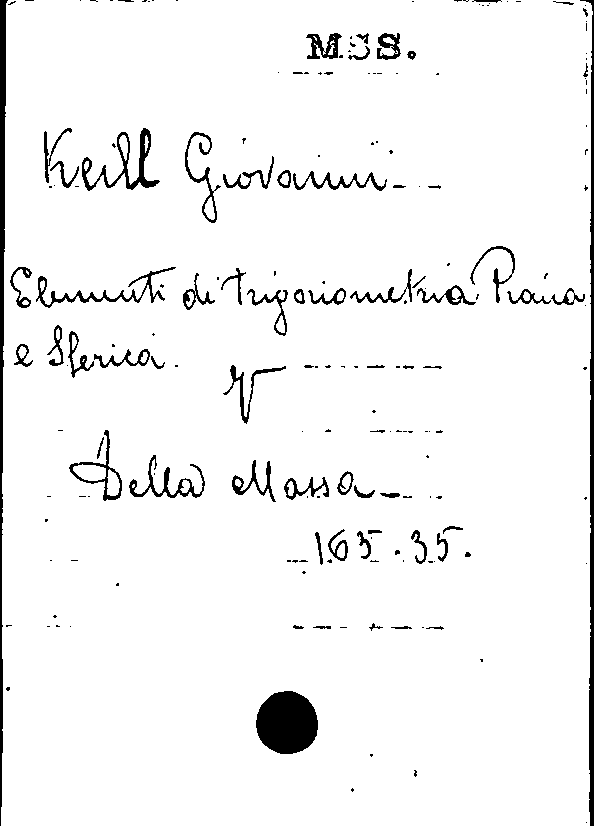 MSS.
Keill Giovanni
Elementi di trigonometria Piana
e Sferica.
V
Della Massa
163.35.